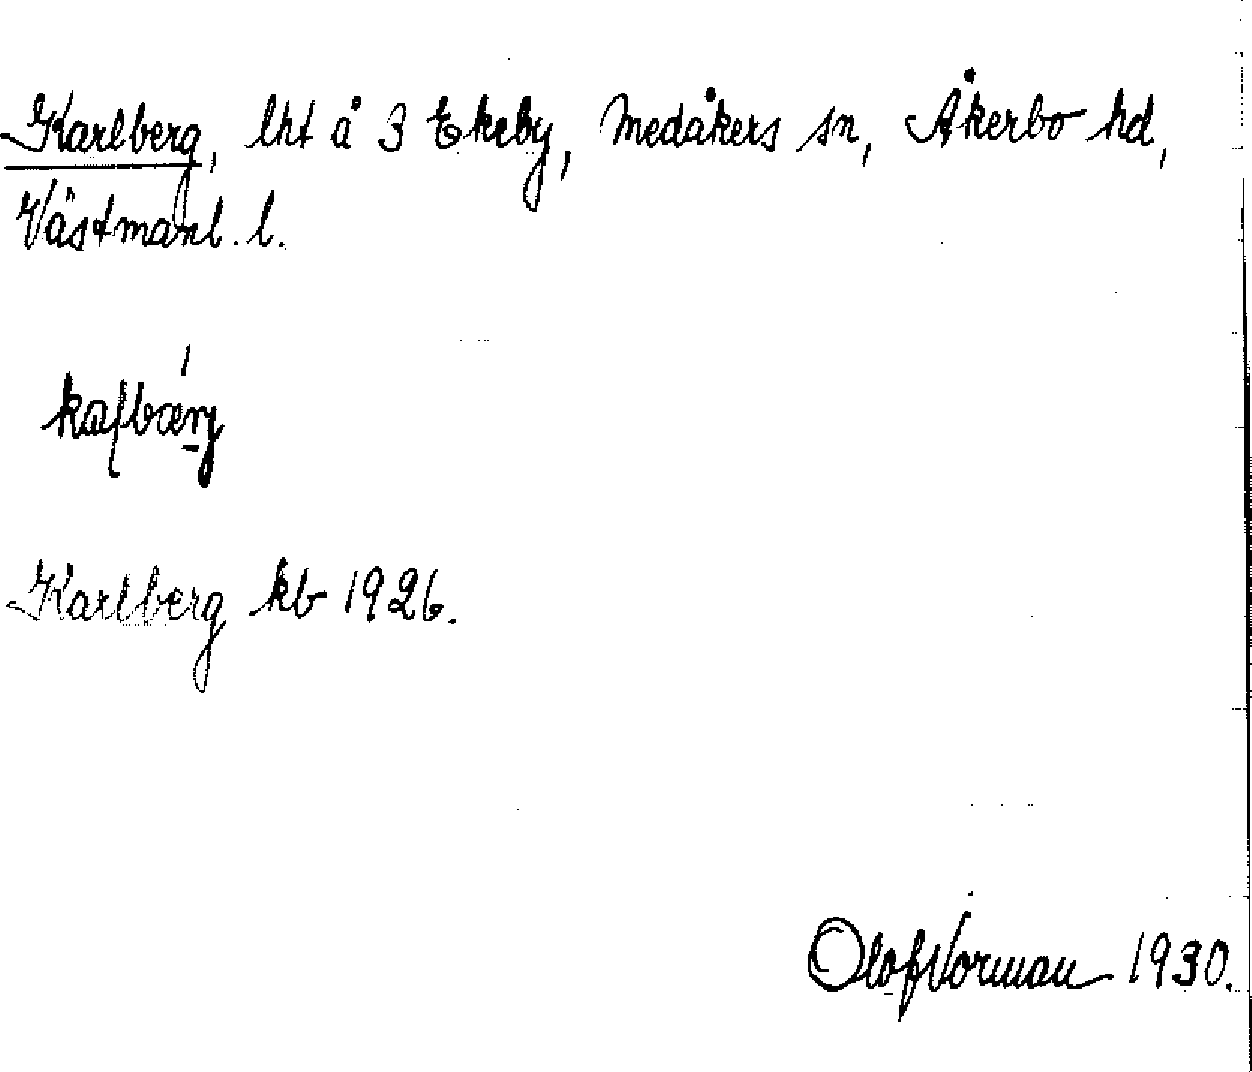 Karlberg, lht å 3 Ekeby, Medåkers sn, Åkerbo hd,
Västmanl. l.
Karlberg kb 1926.
Olof Norman 1930.